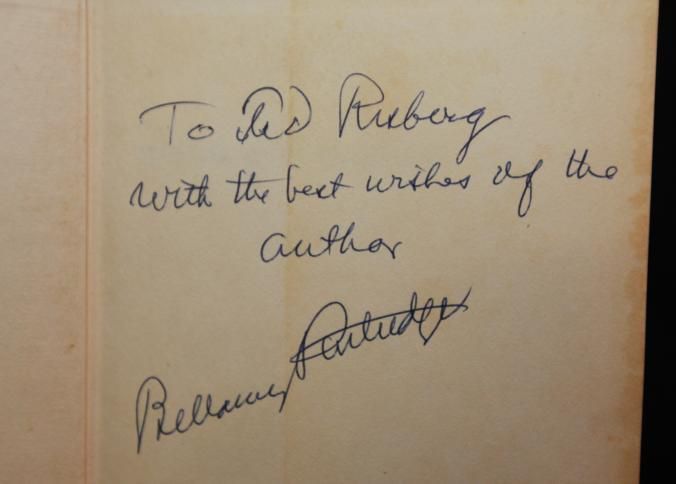 To Ted Rusberg
with the best wishes of the
author
Bellamy Partridge